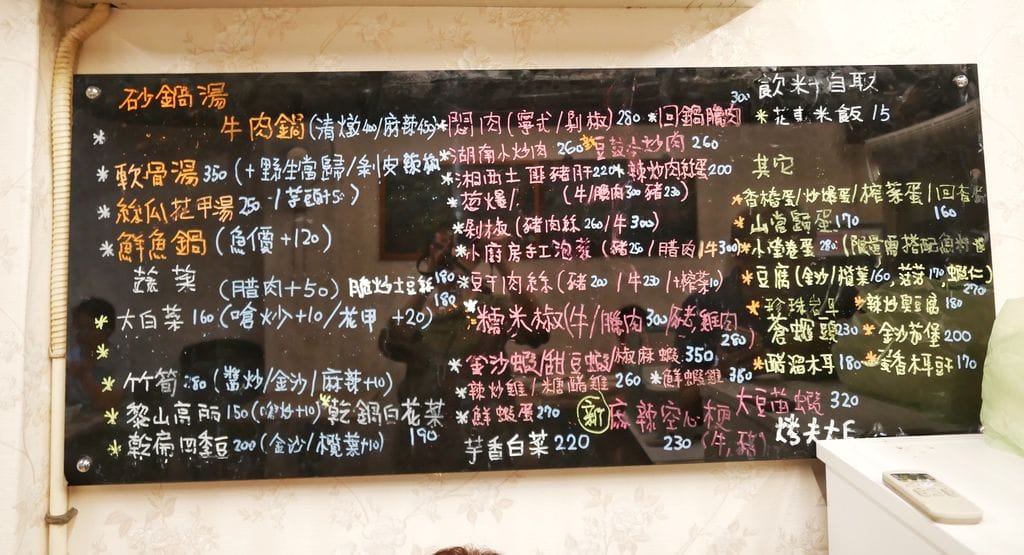 砂鍋湯
牛肉鍋(清燉400/麻辣450)
軟骨湯350(+野生當歸/剝皮辣椒
絲瓜花甲湯250 /芋頭+50)
鮮魚鍋(魚價+120)
蔬菜
(腊肉+50) 脆炒土豆絲180
180
大白菜160(嗆炒+10/花甲 +20)
竹筍280(醬炒/金沙/麻辣+10)
黎山高麗150(嗆炒+10)乾鍋白花菜
190
乾扁四季豆200(金沙/欖菜+10)
悶肉(寧式/剁椒)280 回鍋臘肉
300
湖南小炒肉260 新豆鼓 炒肉260
湘西土匪豬肝220 辣炒肉 蛋200
蔥爆/ (牛/臘肉300豬230)
剁椒(豬肉絲260/牛300)
小廚房手工泡菜(豬250/腊肉/牛300
豆干肉絲(豬200/牛230/+榨菜10)
糯米椒(牛/臘肉300/豬雞肉
280)
金沙蝦/甜豆蝦/椒麻蝦350
辣炒雞/糖醋雞260 鮮蝦雞360
鮮蝦蛋270
新 麻辣空心梗
230(牛,豬)
芋香白菜220
飲料自取
花東米飯15
其它
香椿蛋/炒爆蛋/榨菜蛋/回香蛋
160
山當歸蛋170
小捲蛋280
豆腐(金沙/欖菜160,菇菇170,蝦仁)
270
辣炒臭豆腐180
蒼蠅頭230 金沙茄堡200
醋溜木耳180 170
大豆苗蝦320
烤夫